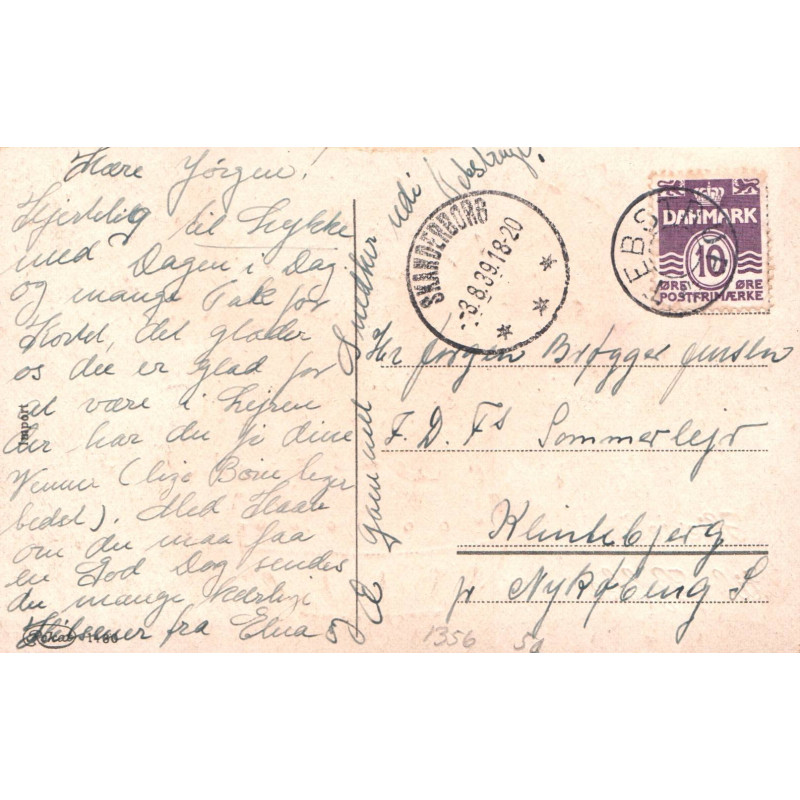 Kære Jørgen!
Hjertelig til Lykke
med Dagen i Dag
og mange Tak for
Kortet, det glæder
os du er glad for
at være i Lejren
der har du jo dine
Venner (lige Børn leger
bedst). Med Haab
om du maa faa
en God Dag sendes
du mange kærlige
Hilsener fra Elna og
udi
SKANDERBORG
-3.8.39.18-20
EBST
DANMARK
10
ØRE ØRE
POSTFRIMÆRKE
Hr Jørgen Brøgger Jensen
F.D.Fs Sommerlejr
Klintebjerg
pr Nykøbing S.
Import
1480
1356